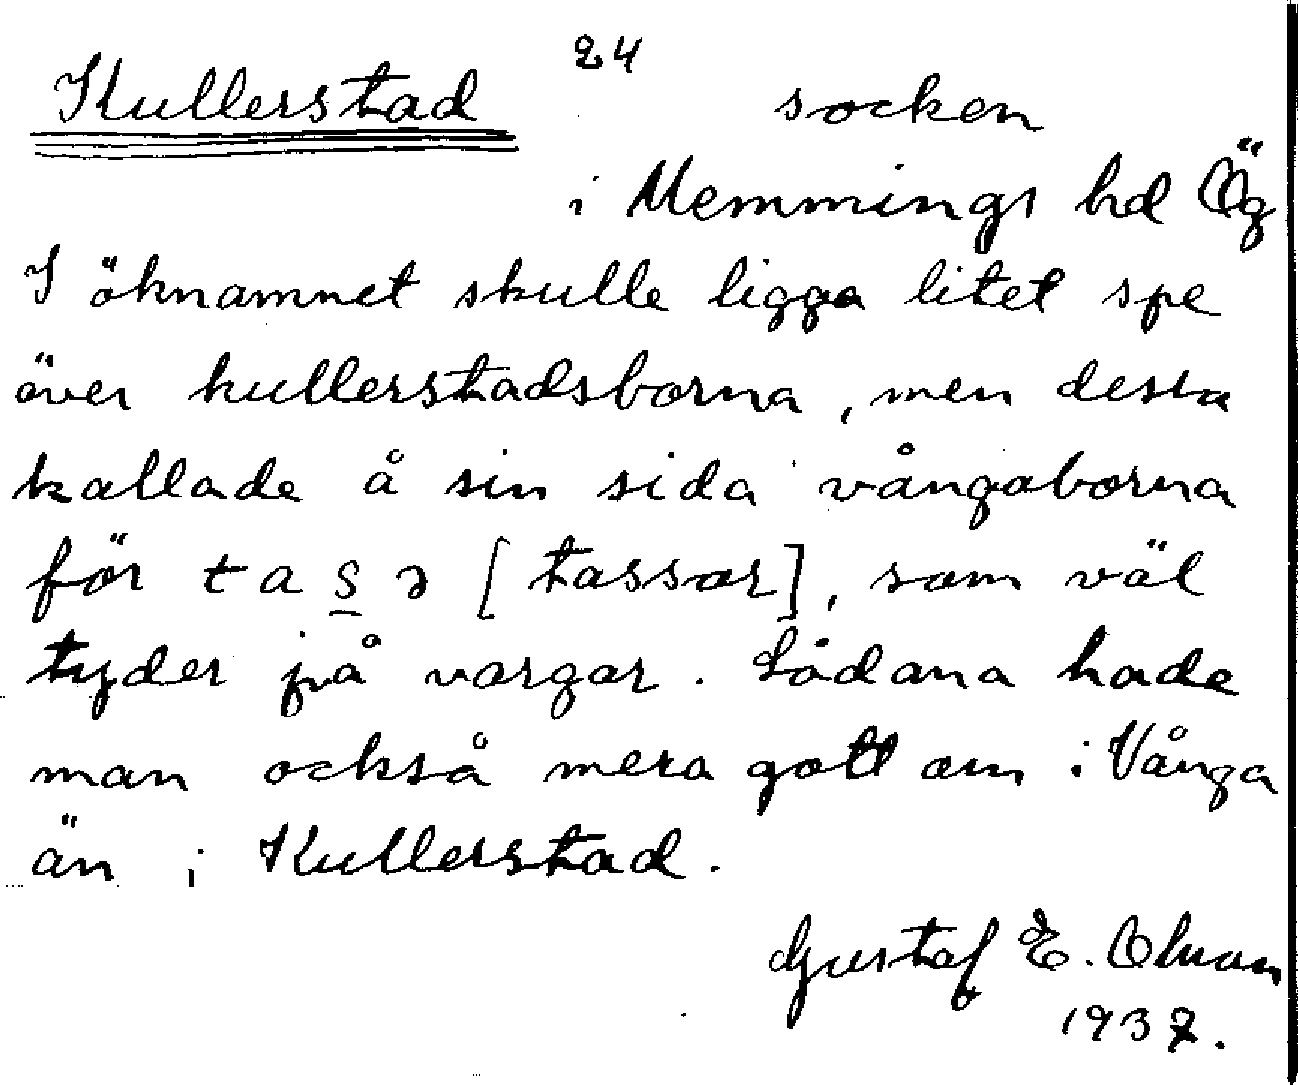 24
Kullerstad socken
i Memmings hd Ög
I öknamnet skulle ligga litet spe
över kullerstadsborna, men dessa
kallade å sin sida vångaborna
för t a s̲ ɔ [tassar], som väl
tyder på vargar. Sådana hade
man också mera gott om i Vånga
än i Kullerstad.
Gustaf E.
1937.